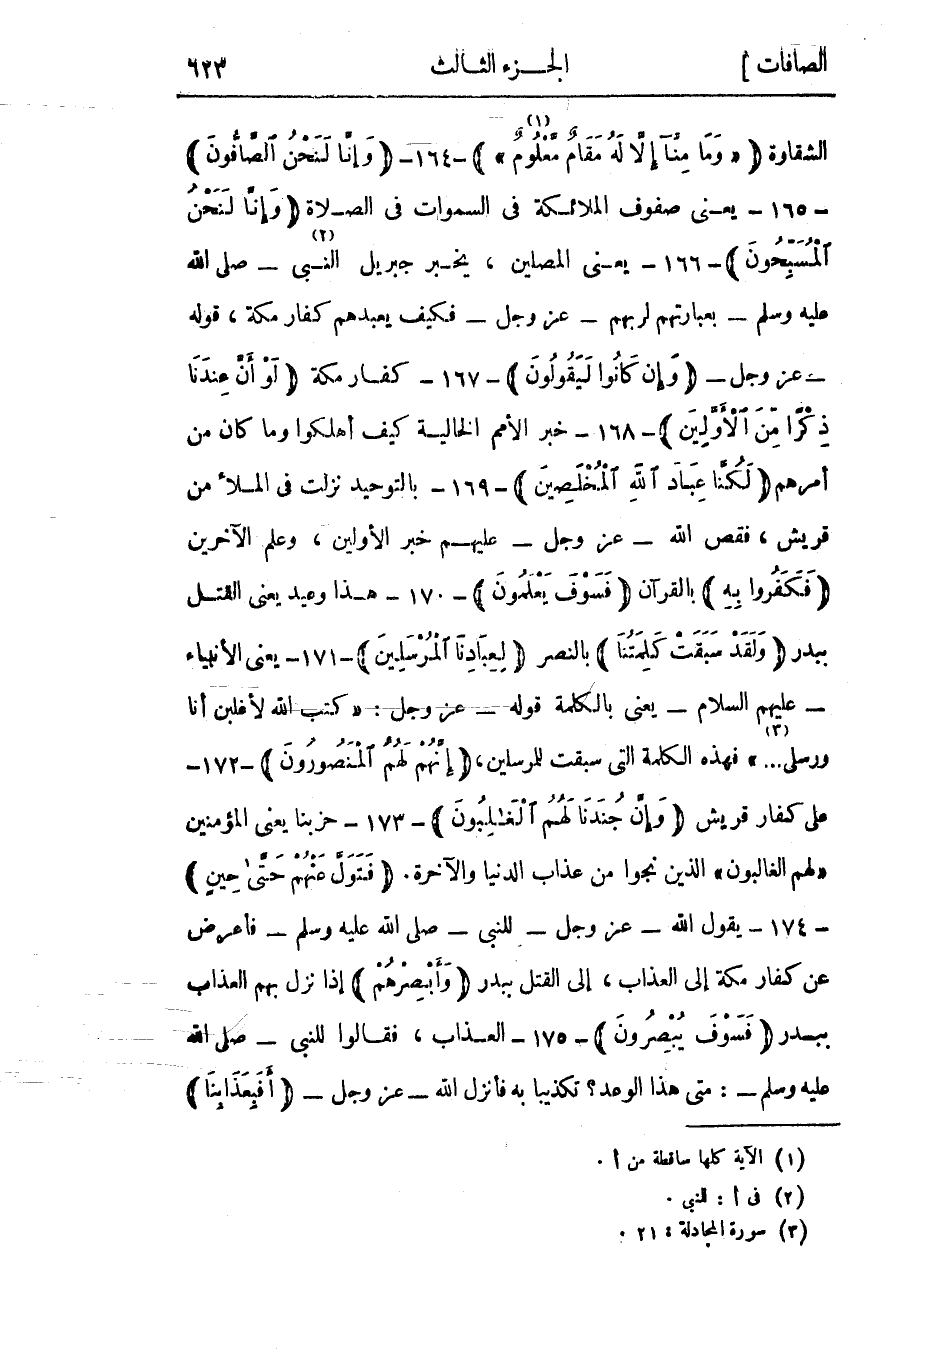 الصافات ] الجـــزء الثـــالث ٦٢٣
(١)
الشقاوة ( « وَمَا مِنَّآ إِلَّا لَهُ مَقَامٌ مَّعْلُومٌ » ) -١٦٤- ( وَإِنَّا لَنَحْنُ ٱلصَّآفُّونَ )
- ١٦٥ - يعـنى صفوف الملائـكة فى السموات فى الصـلاة ( وَإِنَّا لَنَحْنُ
(٢)
ٱلْمُسَبِّحُونَ ) - ١٦٦ - يعـنى المصلين ، يخـبر جبريل النـبى — صلى الله
عليه وسلم — بعبارتهم لربهم — عز وجل — فكيف يعبدهم كفار مكة ، قوله
— عز وجل — ( وَإِن كَانُوا لَيَقُولُونَ ) - ١٦٧ - كفـار مكة ( لَوْ أَنَّ عِندَنَا
ذِكْرًا مِّنَ ٱلْأَوَّلِينَ ) - ١٦٨ - خبر الأمم الخاليـة كيف أهلكوا وما كان من
أمرهم ( لَكُنَّا عِبَادَ ٱللَّهِ ٱلْمُخْلَصِينَ ) - ١٦٩ - بالتوحيد نزلت فى المـلأ من
قريش ، فقص الله — عز وجل — عليهـم خبر الأولين ، وعلم الآخرين
( فَكَفَرُوا بِهِ ) بالقرآن ( فَسَوْفَ يَعْلَمُونَ ) - ١٧٠ - هـذا وعيد يعنى القتـل
ببدر ( وَلَقَدْ سَبَقَتْ كَلِمَتُنَا ) بالنصر ( لِعِبَادِنَا ٱلْمُرْسَلِينَ ) -١٧١- يعنى الأنبياء
— عليهم السلام — يعنى بالكلمة قوله — عز وجل : « كتب الله لأغلبن أنا
(٣)
ورسلى... » فهذه الكلمة التى سبقت للمرسلين، ( إِنَّهُمْ لَهُمُ ٱلْمَنصُورُونَ ) -١٧٢-
على كفار قريش ( وَإِنَّ جُندَنَا لَهُمُ ٱلْغَٰلِبُونَ ) - ١٧٣ - حزبنا يعنى المؤمنين
« لهم الغالبون » الذين نجوا من عذاب الدنيا والآخرة . ( فَتَوَلَّ عَنْهُمْ حَتَّىٰ حِينٍ )
- ١٧٤ - يقول الله — عز وجل — للنبى — صلى الله عليه وسلم — فأعرض
عن كفار مكة إلى العذاب ، إلى القتل ببدر ( وَأَبْصِرْهُمْ ) إذا نزل بهم العذاب
ببـدر ( فَسَوْفَ يُبْصِرُونَ ) - ١٧٥ - العـذاب ، فقـالوا للنبى — صلى الله
عليه وسلم — : متى هذا الوعد؟ تكذيبا به فأنزل الله — عز وجل — ( أَفَبِعَذَابِنَا )
(١) الآية كلها ساقطة من أ .
(٢) فى أ : للنبى .
(٣) سورة المجادلة : ٢١ .